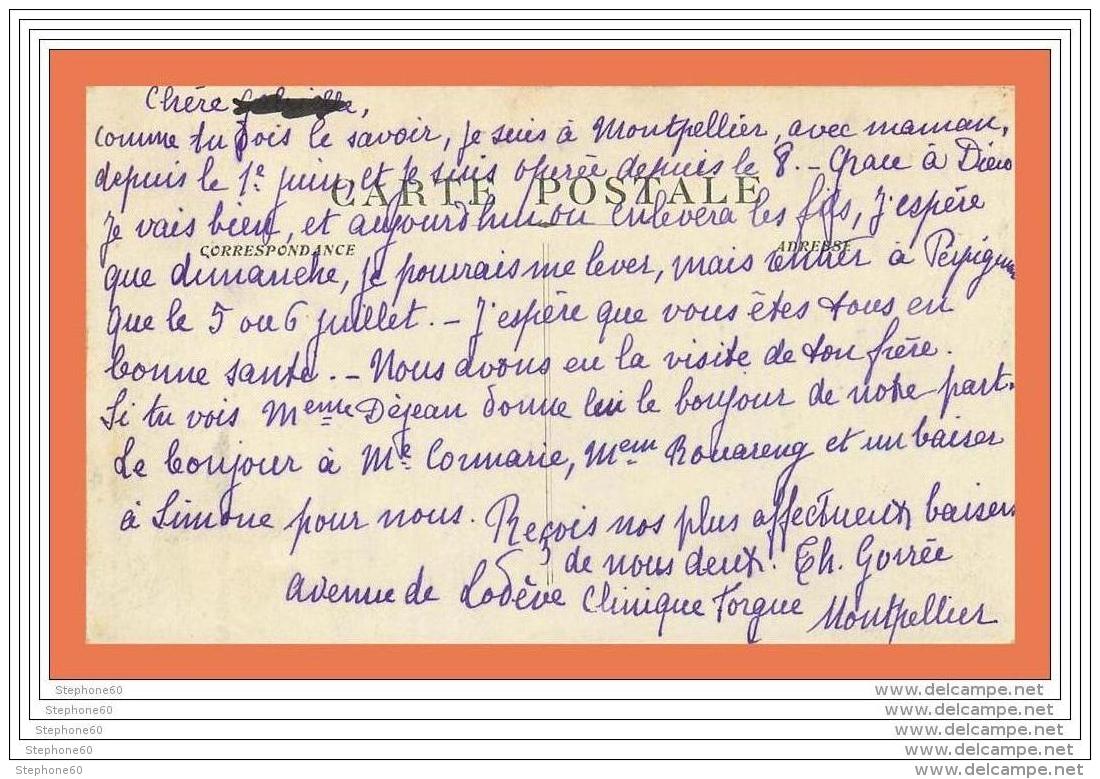 Chère ,
comme tu dois le savoir, je suis à Montpellier, avec maman,
depuis le 1e juin, et je suis opérée depuis le 8. - Grace à Dieu
CARTE POSTALE
je vais bien, et aujourd'hui on enlevera les fils, j'espère
CORRESPONDANCE ADRESSE
que dimanche, je pourais me lever, mais entrer à
que le 5 ou 6 juillet. - J'espère que vous êtes tous en
bonne santé. - Nous avons eu la visite de ton frère.
Si tu vois Meme Déjean donne lui le bonjour de notre part.
Le bonjour à Me Conmarie, Mem Rouareng et un baiser
à Simone pour nous. Reçois nos plus affectueux baisers
de nous deux. Th. Gorrée
Avenue de Lodève Clinique Torgue Montpellier
Stephone60 www.delcampe.net
Stephone60 www.delcampe.net
Stephone60 www.delcampe.net
Stephone60 www.delcampe.net
Stephone60 www.delcampe.net